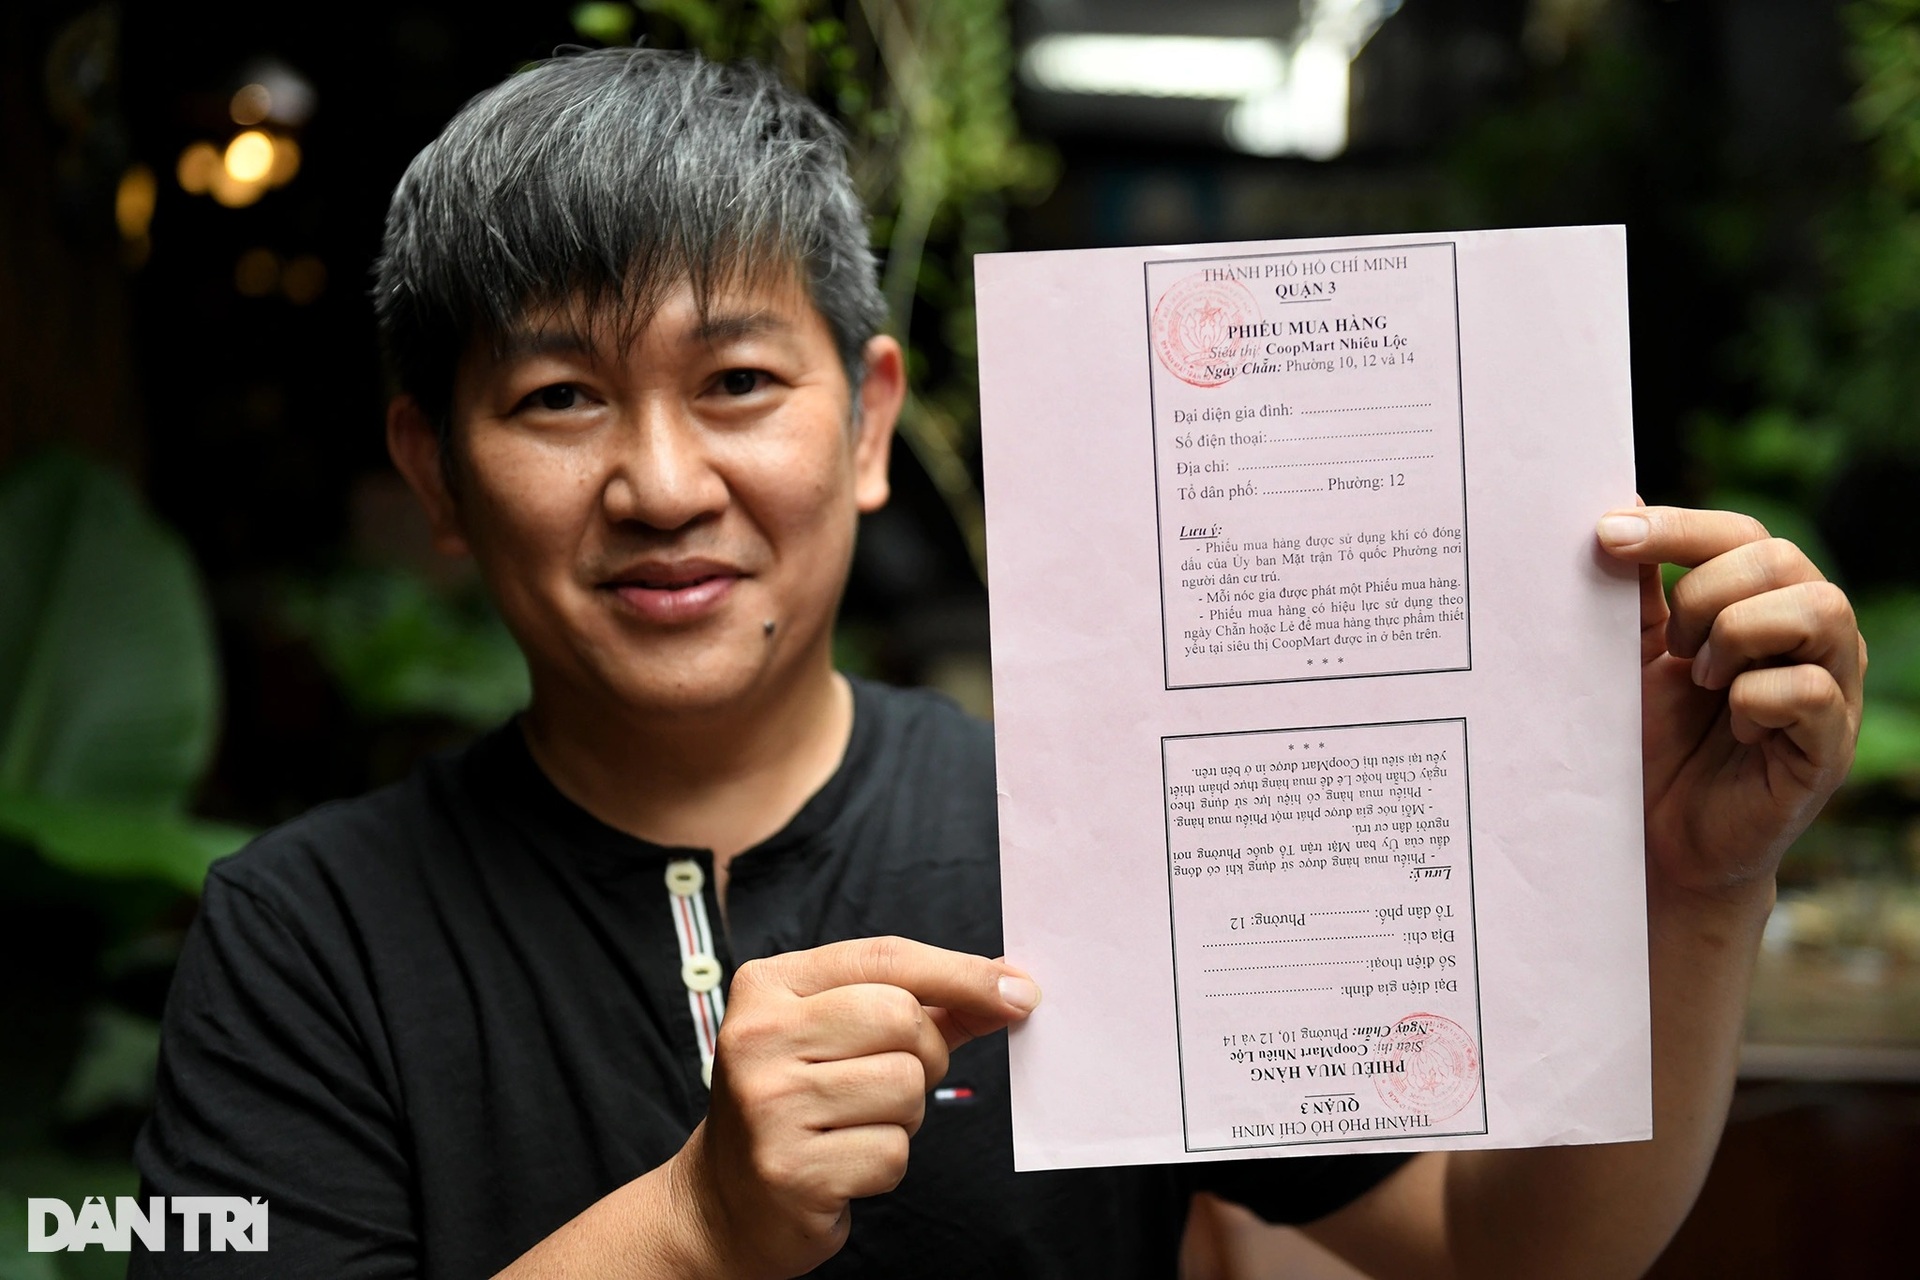 THÀNH PHỐ HỒ CHÍ MINH
QUẬN 3
PHIẾU MUA HÀNG
Siêu thị: CoopMart Nhiêu Lộc
Ngày Chẵn: Phường 10, 12 và 14
Đại diện gia đình: ................................
Số điện thoại:........................................
Địa chỉ: ................................................
Tổ dân phố: ............... Phường: 12
Lưu ý:
- Phiếu mua hàng được sử dụng khi có đóng
dấu của Ủy ban Mặt trận Tổ quốc Phường nơi
người dân cư trú.
- Mỗi nóc gia được phát một Phiếu mua hàng.
- Phiếu mua hàng có hiệu lực sử dụng theo
ngày Chẵn hoặc Lẻ để mua hàng thực phẩm thiết
yếu tại siêu thị CoopMart được in ở bên trên.
* * *
THÀNH PHỐ HỒ CHÍ MINH
QUẬN 3
PHIẾU MUA HÀNG
Siêu thị: CoopMart Nhiêu Lộc
Ngày Chẵn: Phường 10, 12 và 14
Đại diện gia đình: ................................
Số điện thoại:........................................
Địa chỉ: ................................................
Tổ dân phố: ............... Phường: 12
Lưu ý:
- Phiếu mua hàng được sử dụng khi có đóng
dấu của Ủy ban Mặt trận Tổ quốc Phường nơi
người dân cư trú.
- Mỗi nóc gia được phát một Phiếu mua hàng.
- Phiếu mua hàng có hiệu lực sử dụng theo
ngày Chẵn hoặc Lẻ để mua hàng thực phẩm thiết
yếu tại siêu thị CoopMart được in ở bên trên.
* * *
DÂN TRÍ